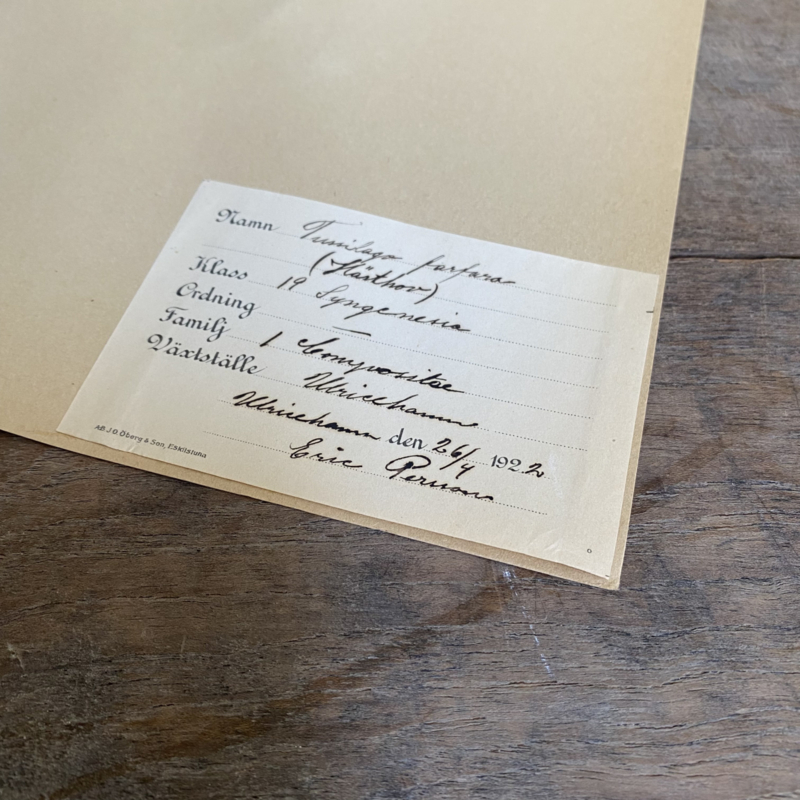 Namn Tussilago farfara
(Hästhov)
Klass 19 Syngenesia
Ordning —
Familj 1 Compositae
Växtställe Ulricehamn
Ulricehamn den 26/4 1922
Eric Persson
AB. J. O. Öberg & Son, Eskilstuna